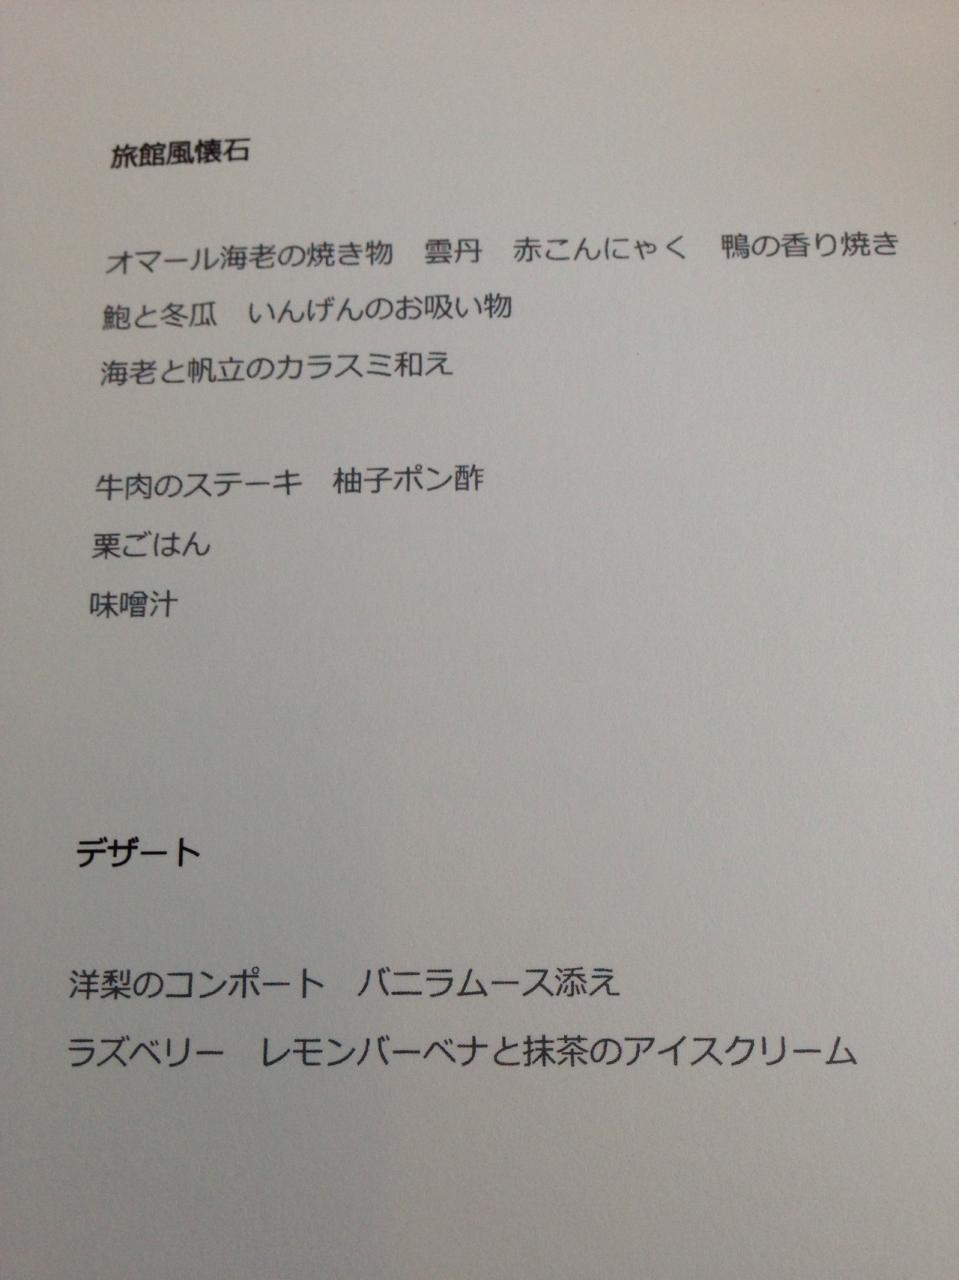 旅館風懐石
オマール海老の焼き物　雲丹　赤こんにゃく　鴨の香り焼き
鮑と冬瓜　いんげんのお吸い物
海老と帆立のカラスミ和え
牛肉のステーキ　柚子ポン酢
栗ごはん
味噌汁
デザート
洋梨のコンポート　バニラムース添え
ラズベリー　レモンバーベナと抹茶のアイスクリーム